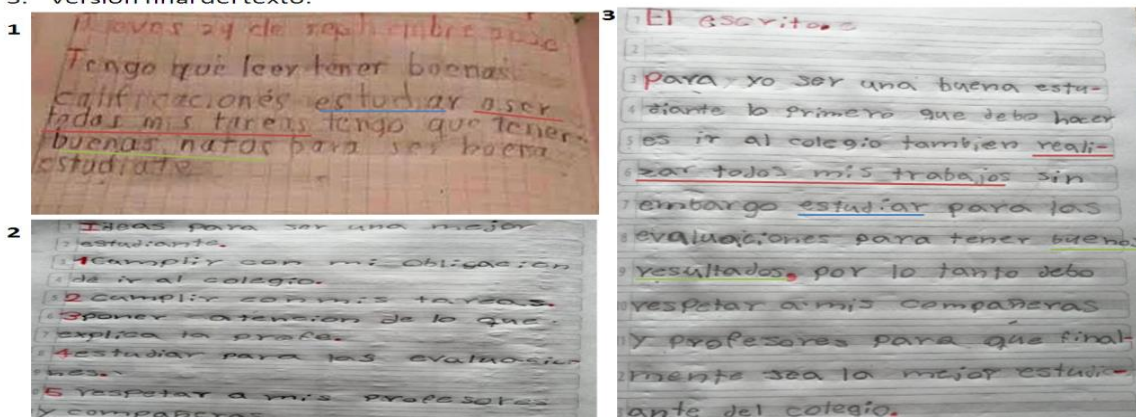 3. Versión final del texto.
1
Jueves 24 de septiembre 2020
Tengo que leer tener boenas
calificaciones estudiar aser
todas mis tareas tengo que tener
buenas notas para ser boena
estudiate
2
Ideas para ser una mejor
estudiante.
1 cumplir con mi obligación
de ir al colegio.
2 cumplir con mis tareas.
3 poner atencion de lo que
explica la profe.
4 estudiar para las evaluasio
nes.
5 respetar a mis profesores
y compañeras
3
El escrito
Para yo ser una buena estu-
diante lo primero que debo hacer
es ir al colegio tambien reali-
zar todos mis trabajos sin
embargo estudiar para las
evaluaciones para tener buenos
resultados, por lo tanto debo
respetar a mis compañeras
y profesores para que final-
mente sea la mejor estudi-
ante del colegio.